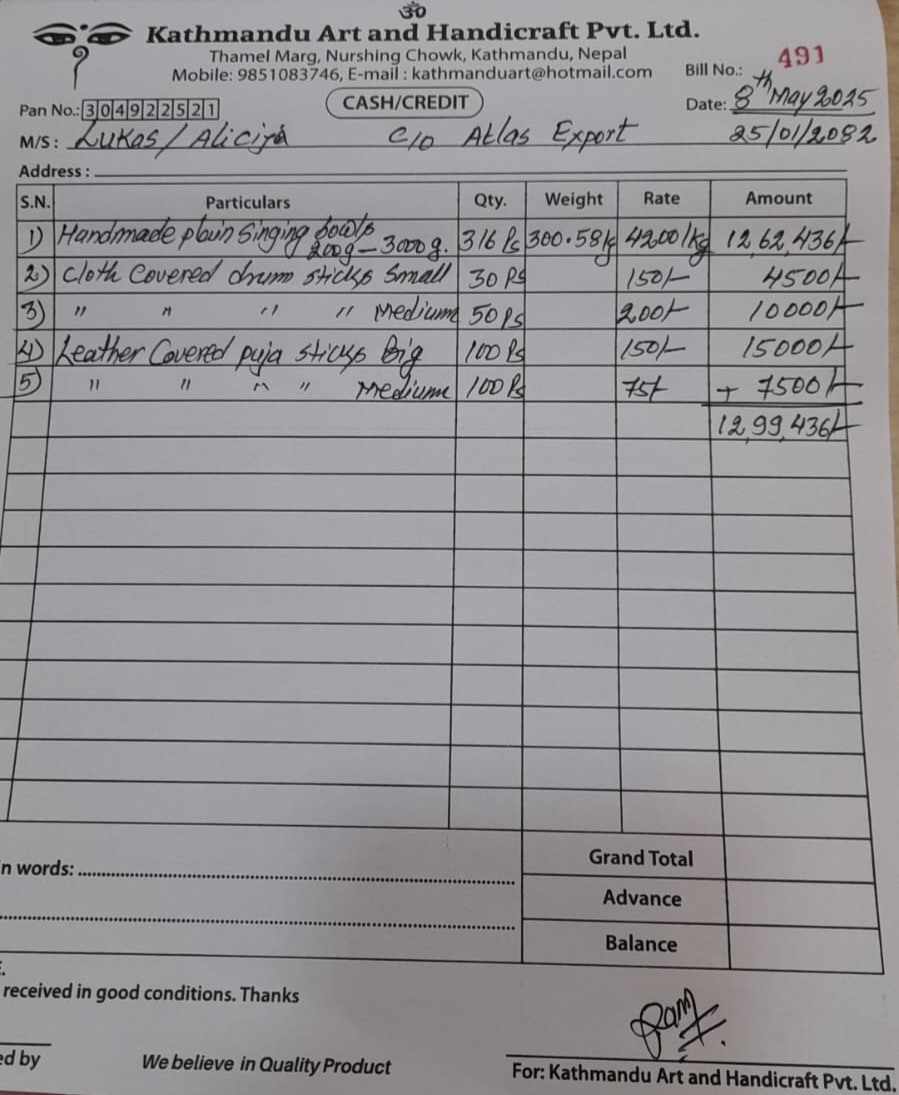 ॐ
Kathmandu Art and Handicraft Pvt. Ltd.
Thamel Marg, Nurshing Chowk, Kathmandu, Nepal
Mobile: 9851083746, E-mail : kathmanduart@hotmail.com
Bill No.: 491
Pan No.: 304922521
CASH/CREDIT
Date: 8th May 2025
M/S: Lukas / Alicija c/o Atlas Export 25/01/2082
Address :
S.N. Particulars Qty. Weight Rate Amount
1) Handmade plain Singing bowls 200g – 3000g. 316 Ps 300.58kg 4200/kg 12,62,436/-
2) Cloth Covered drum sticks Small 30 Ps 150/- 4500/-
3) " " " " Medium 50 Ps 200/- 10000/-
4) Leather Covered puja sticks Big 100 Ps 150/- 15000/-
5) " " " " Medium 100 Ps 75/- + 7500/-
12,99,436/-
Grand Total
n words:
Advance
Balance
received in good conditions. Thanks
ed by
We believe in Quality Product
For: Kathmandu Art and Handicraft Pvt. Ltd.